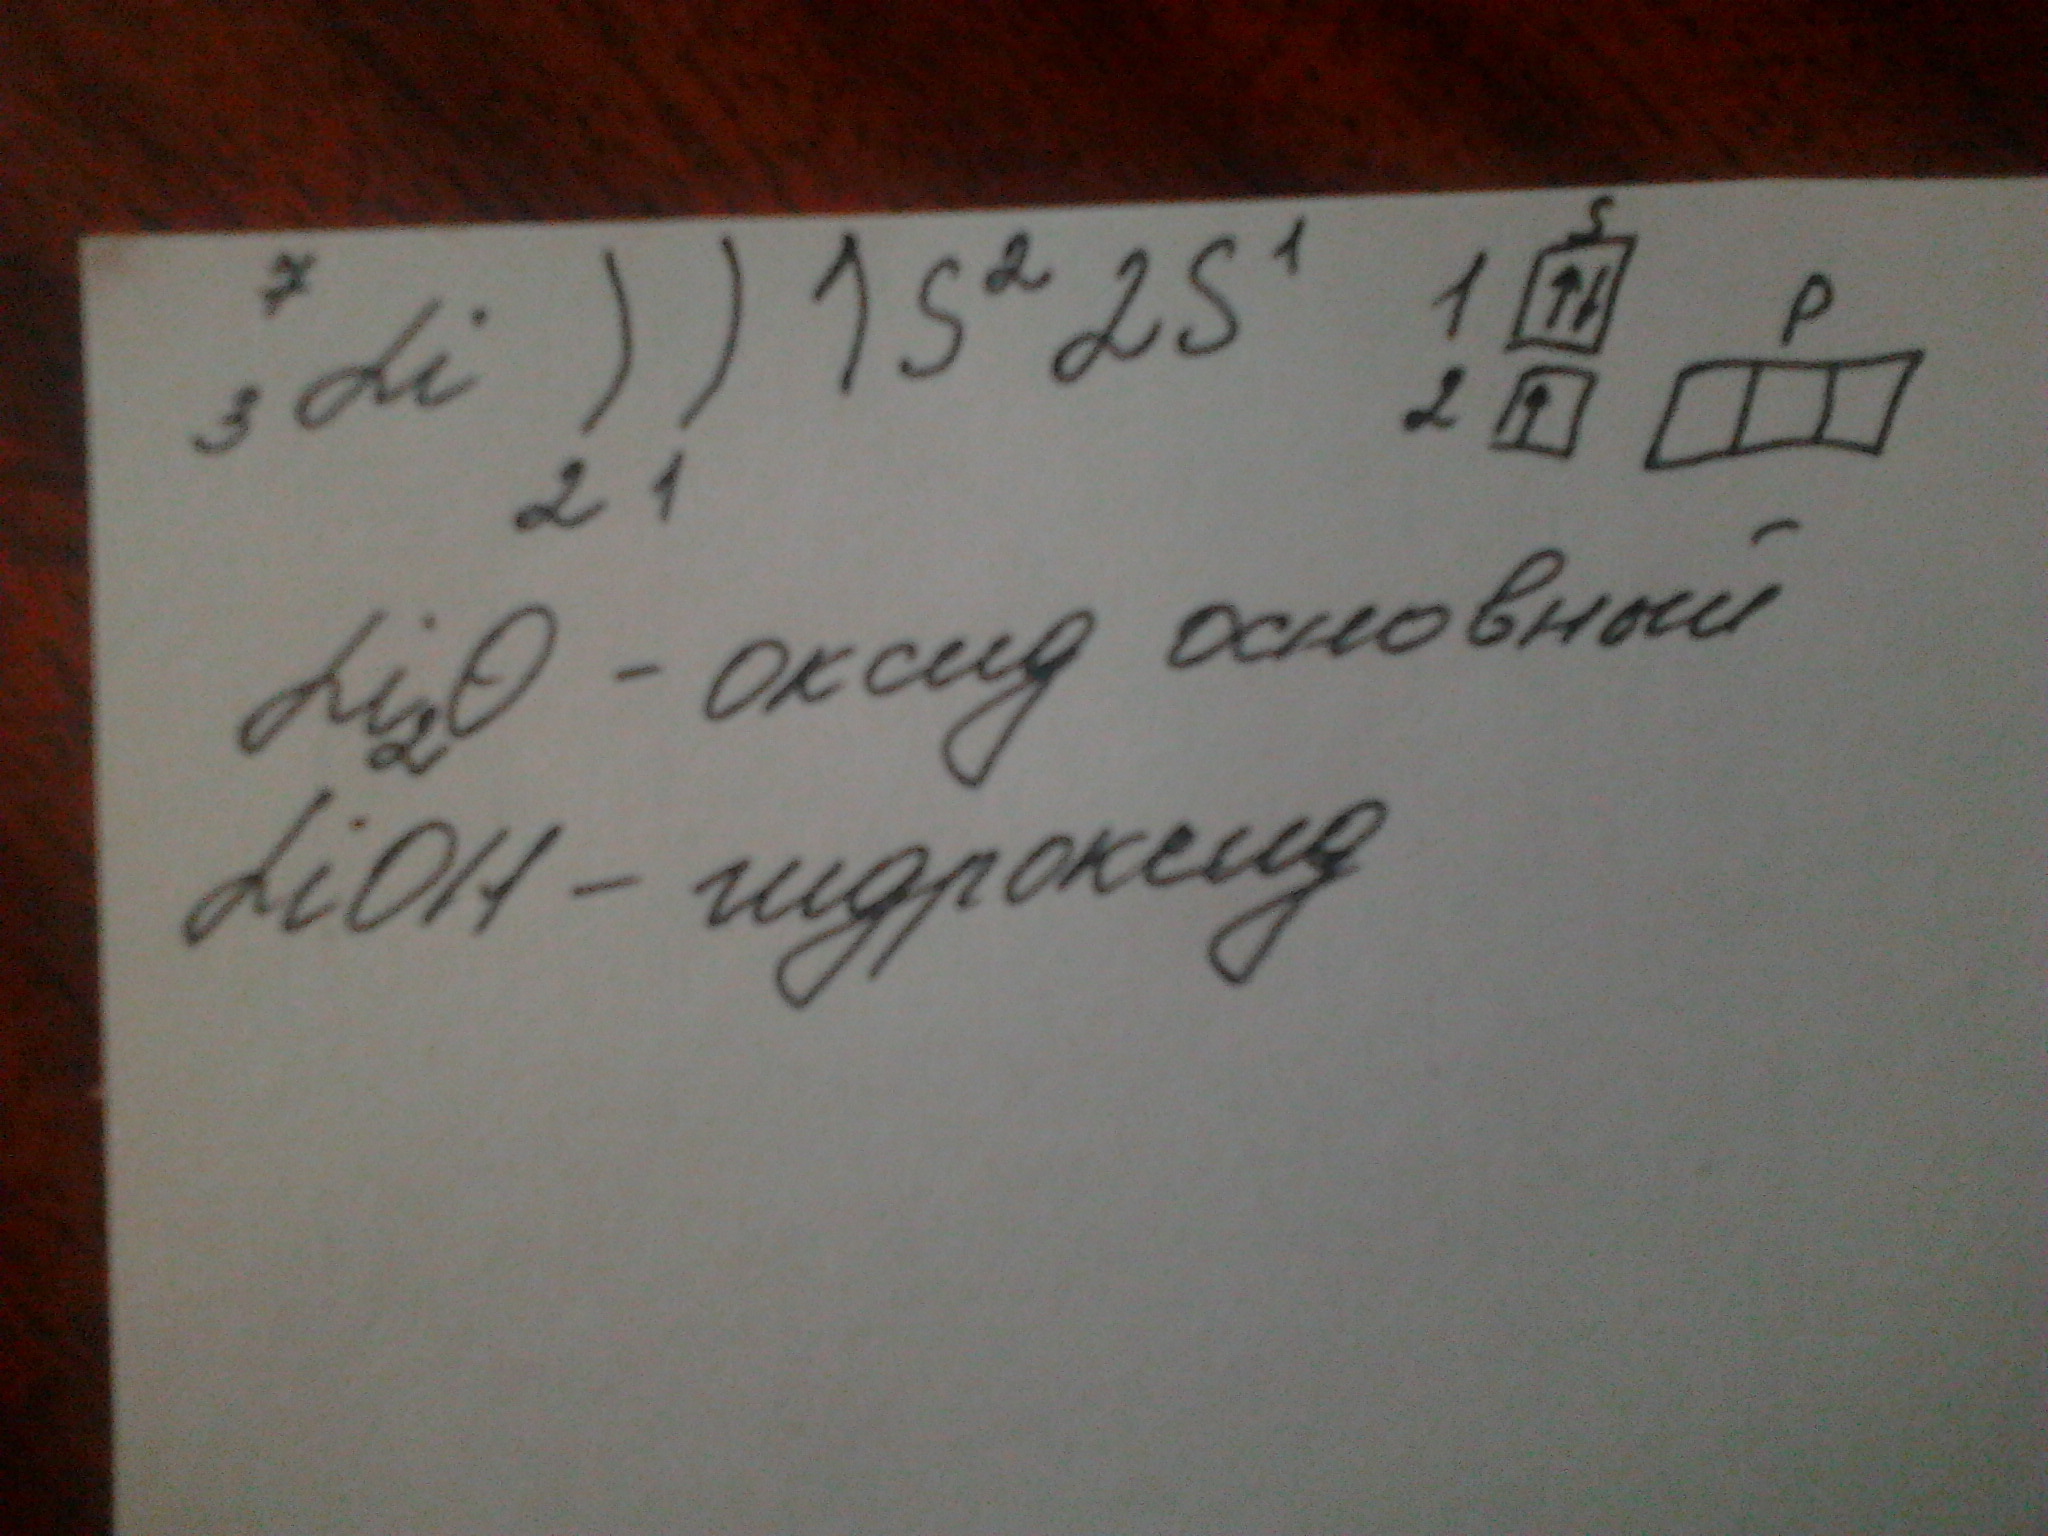 7
3 Li ) ) 1S² 2S¹ 1 ↑↓ S
2 1 2 ↑ P
Li₂O - оксид основный
LiOH - гидроксид